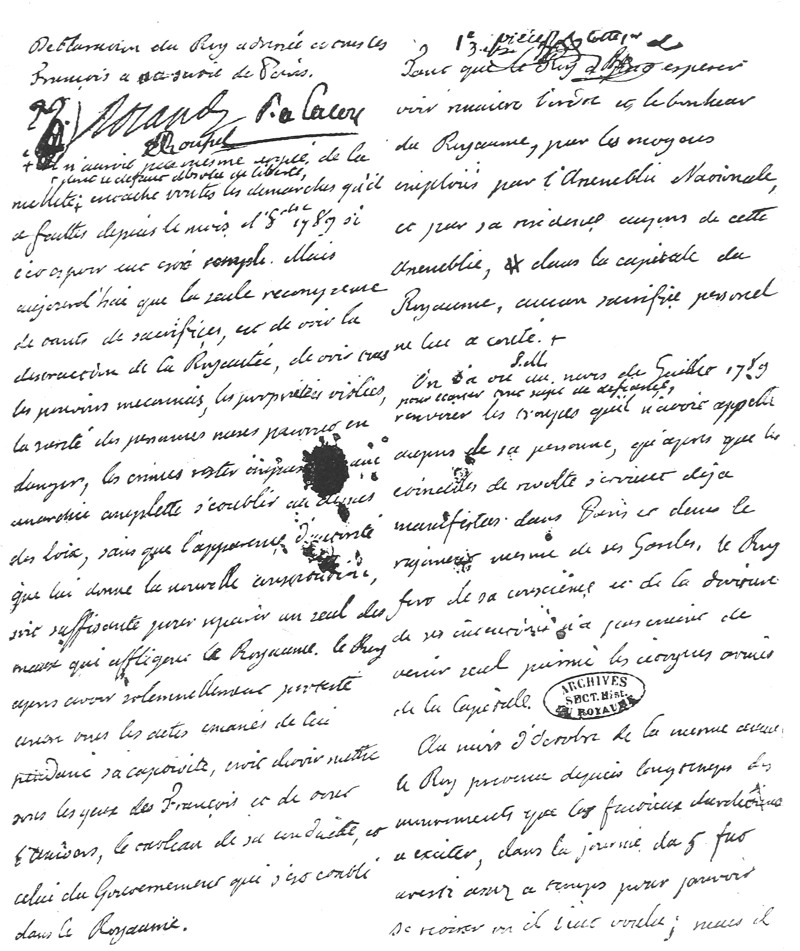 Declaration du Roy adressée a tous les
François a sa sortie de Paris.
+ il n'auroit pas mesme argué, de la
dont le defaut absolu de liberté,
nullité, entache toutes les demarches qu'il
a faittes depuis le mois d'8bre 1789 si
cet espoir eut été rempli. Mais
aujourd'hui que la seule recompense
de tants de sacrifices, est de voir la
destruction de la Royauté, de voir tous
les pouvoirs meconnus, les proprietés violées,
la sureté des personnes mises partout en
danger, les crimes rester
anarchie complette s'etablir au dessus
des loix, sans que l'apparence d'autorité
que lui donne la nouvelle constitution,
soit suffisante pour reparer un seul des
maux qui affligent le Royaume. le Roy
apres avoir solemnellement protesté
contre tous les actes emanés de lui
pendant sa captivité, croit devoir mettre
sous les yeux des François et de tout
l'univers, le tableau de sa conduitte, et
celui du Gouvernement qui s'est etabli
dans le Royaume.
Tant que le Roy a pu esperer
voir renaitre l'ordre et le bonheur
du Royaume, par les moyens
emploiés par l'Assemblée Nationale,
et par sa residence aupres de cette
Assemblée, dans la capitale du
Royaume, aucun sacrifice personel
ne lui a couté. +
On l'a vu au mois de Juillet 1789
pour ecarter tout sujet de defiance,
renvoier les troupes qu'il n'avoit appellé
aupres de sa personne, qu'apres que les
etincelles de revolte s'etoient deja
manifestées dans Paris et dans le
regiment mesme de ses Gardes. le Roy
fort de sa conscience et de la droiture
de ses intentions n'a pas craint de
venir seul parmi les citoyens armés
de la Capitale.
ARCHIVES
SECT. HIST.
DU ROYAUME
Au mois d'Octobre de la mesme année,
le Roy prevenu depuis longtemps des
mouvements que les factieux cherchoient
a exciter, dans la journée du 5 fut
averti assez a temps pour pouvoir
se retirer ou il eut voulu; mais il